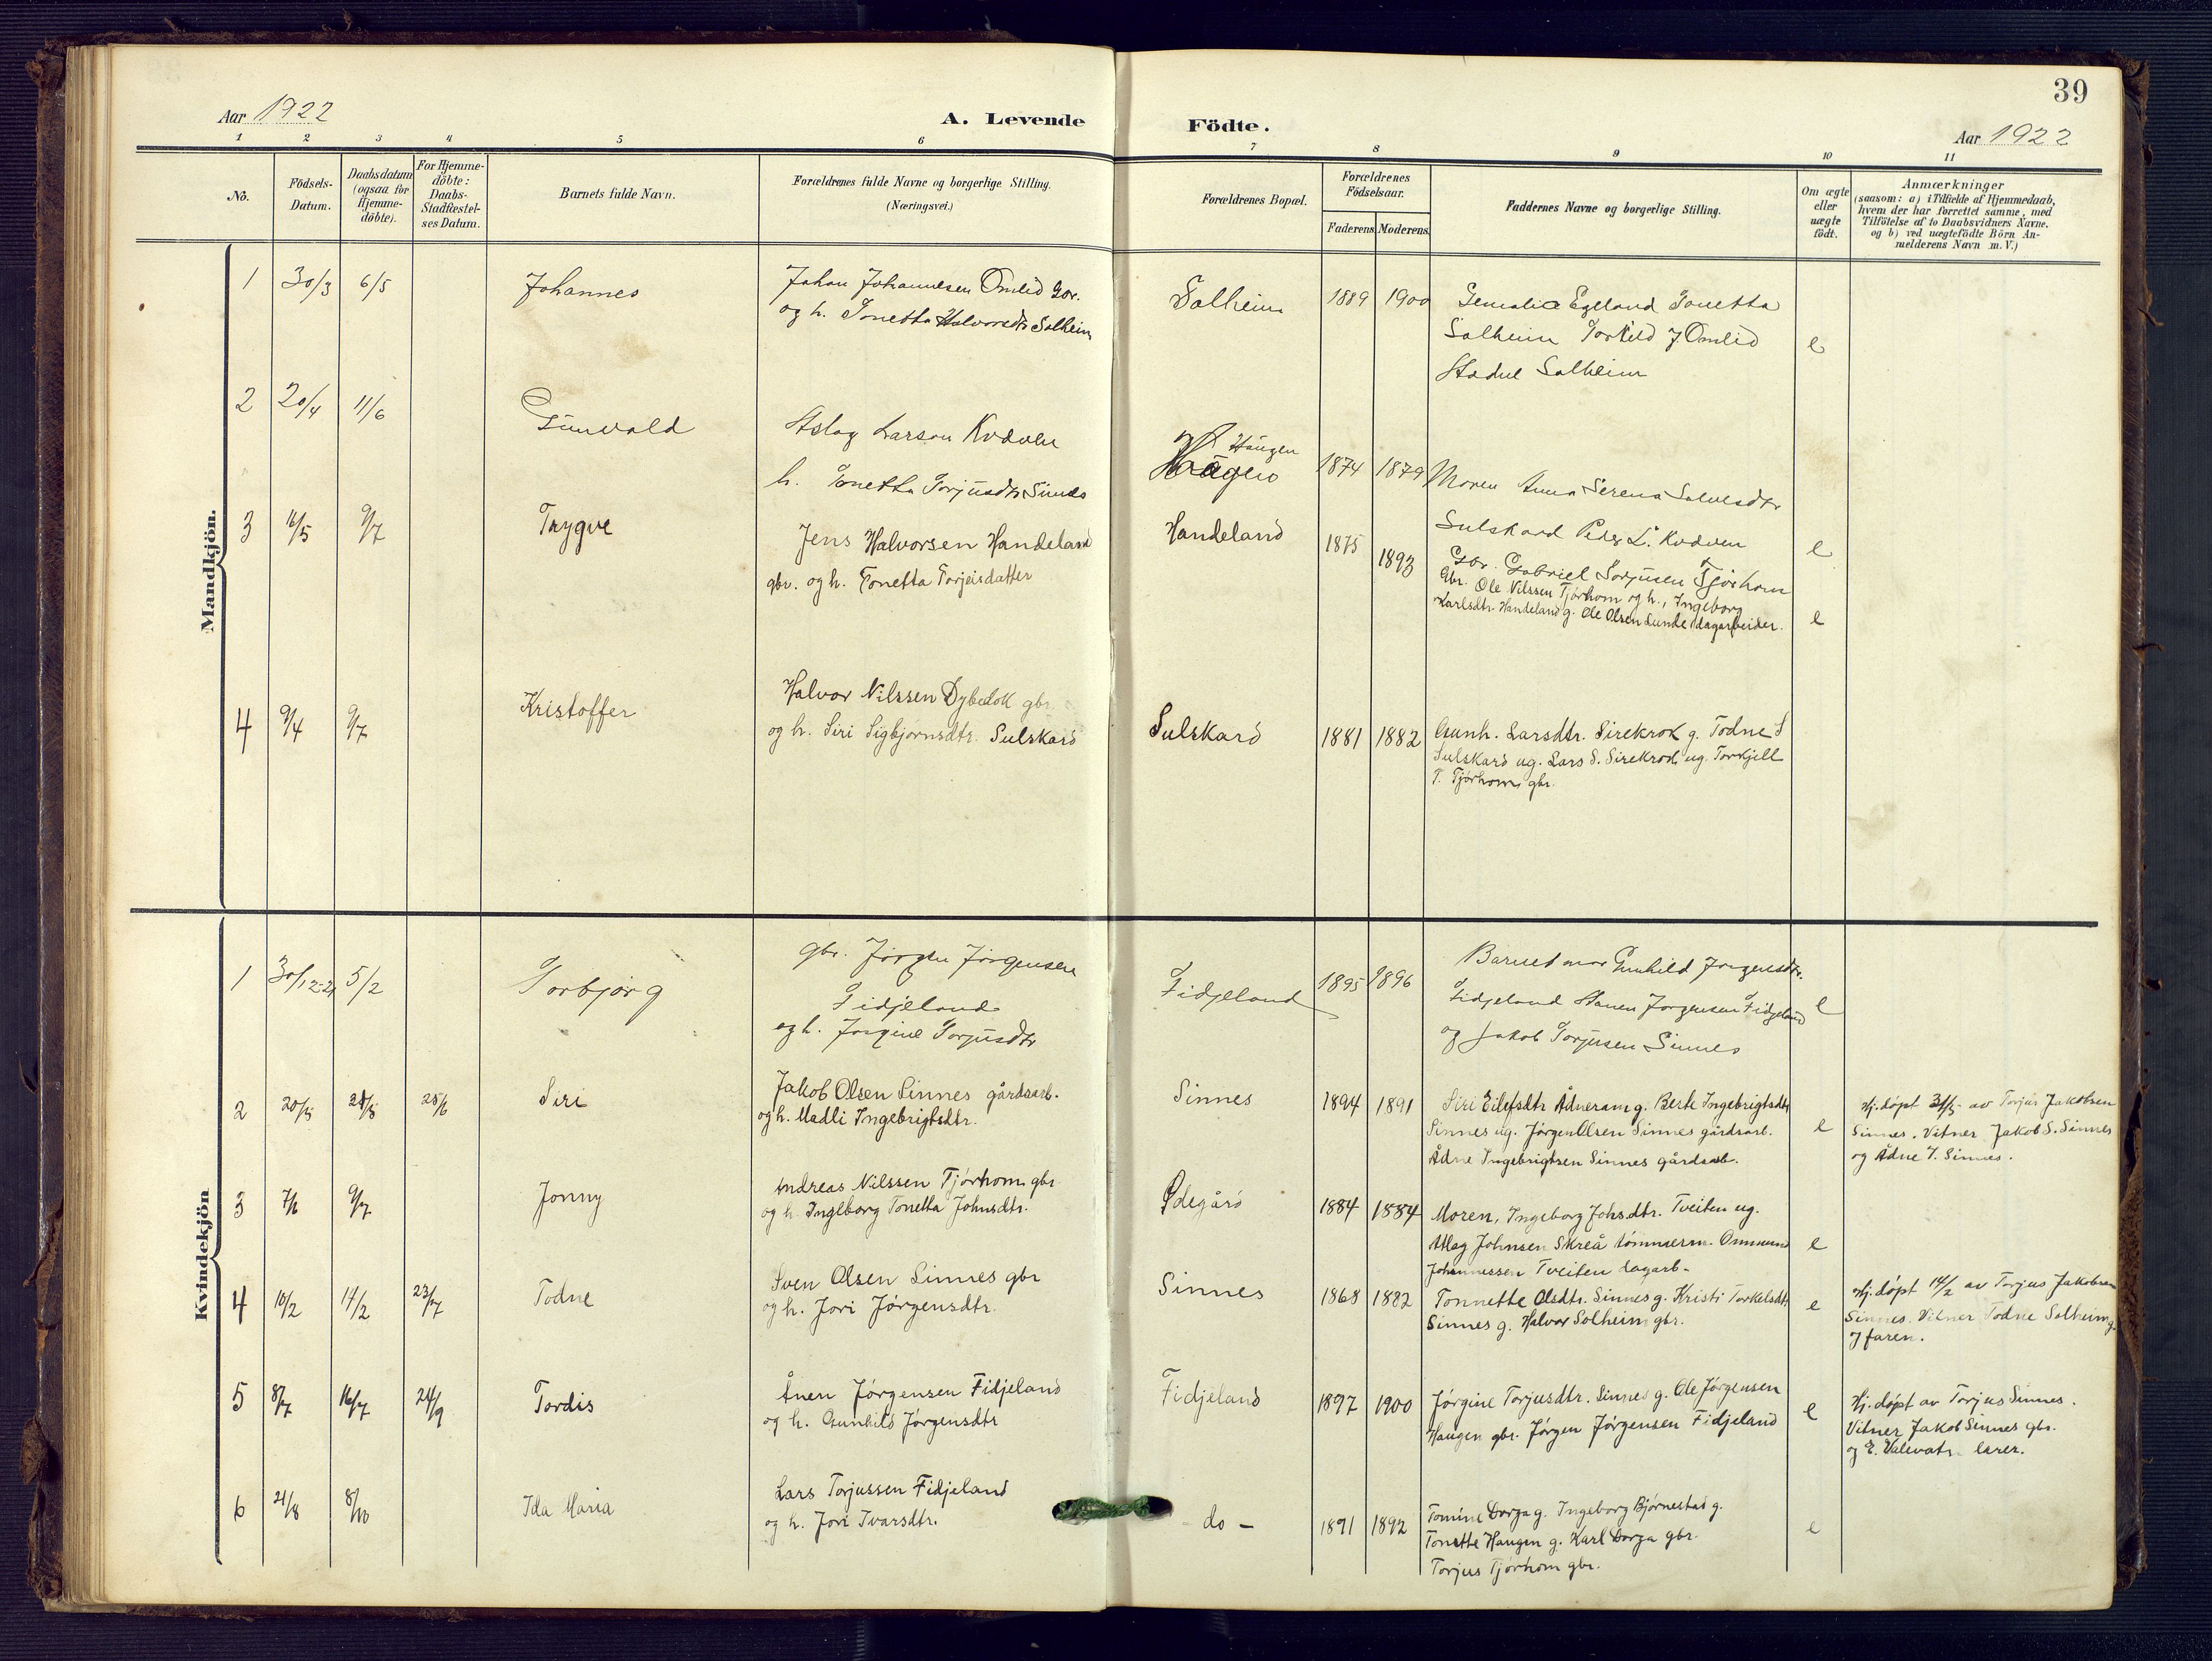 39
Aar 1922
A. Levende
Födte.
Aar 1922
1 2 3 4 5 6 7 8 9 10 11
No.
Födsels-
Datum.
Daabsdatum
(ogsaa for
Hjemme-
döbte).
For Hjemme-
döbte:
Daabs-
Stadfæstel-
ses Datum.
Barnets fulde Navn.
Forældrenes fulde Navne og borgerlige Stilling.
(Næringsvei.)
Forældrenes Bopæl.
Forældrenes
Födselsaar.
Faderens. Moderens.
Faddernes Navne og borgerlige Stilling.
Om ægte
eller
uægte
födt.
Anmærkninger
(saasom: a) i Tilfælde af Hjemmedaab,
hvem der har forrettet samme, med
Tilföielse af to Daabsvidners Navne,
og b) ved uægtefödte Börn An-
melderens Navn m. V.)
Mandkjön.
1 30/3 6/5 Johannes
Johan Johannesen Omlid Gbr.
og h. Tonetta Halvorsdtr Solheim
Solheim 1889 1900
Egeland Tonetta
Solheim Torkild J Omlid
Solheim
e
2 20/4 11/6 Gunvald
Aslag Larsen Kvæven
h. Tonetta Torjusdtr Sinnes
Haugen
1874 1879
Moren Anna Serena Salvesdtr
Sulskard Peder L. Kvæven
Gbr. Gabriel Torjusen Tjörhom
e
3 16/5 9/7 Trygve
Jens Halvorsen Handeland
gbr. og h. Tonetta Torjeisdatter
Handeland 1875 1893
Gbr. Ole Nilssen Tjörhom og h., Ingeborg
Karlsdtr. Handeland g. Ole Olsen Lunde dagarbeider.
e
4 9/4 9/7 Kristoffer
Halvor Nilssen Dybedok gbr
og h. Siri Sigbjørnsdtr. Sulskard
Sulskard 1881 1882
Gunh. Larsdtr. Sirekrok g. Todne S
Sulskard ug. Lars S. Sirekrok ug. Torkjell
T. Tjørhom gbr.
Kvindekjön
1 30/12-21 5/2 Torbjørg
gbr. Jörgen Jörgensen
Fidjeland
og h. Jørgine Torjusdtr
Fidjeland 1895 1896
Barnets mor Gunhild Jørgensdtr.
Fidjeland Hanen Jørgensen Fidjeland
og Jakob Torjusen Sinnes
e
2 20/5 28/5 25/6 Siri
Jakob Olsen Sinnes gårdsarb.
og h. Madli Ingebrigtsdtr.
Sinnes 1894 1891
Siri Eilefsdtr Ådneram g. Berte Ingebrigtsdtr
Sinnes ug. Jørgen Olsen Sinnes gårdsarb.
Ådne Ingebrigtsen Sinnes gårdsarb.
e
Hj. døpt av Torjus Jakobsen
Sinnes. Vitner Jakob S. Sinnes
og Ådne I. Sinnes.
3 7/6 9/7 Jonny
Andreas Nilssen Tjörhom gbr
og h. Ingeborg Tonetta Johnsdtr.
Ødegård 1884 1884
Moren, Ingeborg Johsdtr. Tveiten ug.
Atlag Johnsen Skreå tömmerm. Ommund
Johannessen Tveiten dagarb-
e
4 10/2 14/2 23/7 Todne
Sven Olsen Sinnes gbr
og h. Jori Jörgensdtr.
Sinnes 1868 1882
Tonnette Olsdtr. Sinnes g. Kristi Torkelsdtr
Sinnes g. Halvor Solheim gbr.
e
Hj. døpt 14/2 av Torjus Jakobsen
Sinnes. Vitner Todne Solheim g.
og faren.
5 8/7 16/7 24/9 Tordis
Ånen Jörgensen Fidjeland
og h. Gunhild Jörgensdtr
Fidjeland 1897 1900
Jörgine Torjusdtr. Sinnes g. Ole Jörgensen
Haugen gbr. Jörgen Jörgensen Fidjeland
e
Hj. døpt av Torjus Sinnes.
Vitner Jakob Sinnes gbr.
og E. Valevatn lærer.
6 21/8 8/10 Ida Maria
Lars Torjussen Fidjeland
og h. Jori Ivarsdtr.
- do - 1891 1892
Tomine Dorga g. Ingeborg Bjørnestad g.
Tonette Haugen g. Karl Dorga gbr.
Torjus Tjørhom gbr.
e